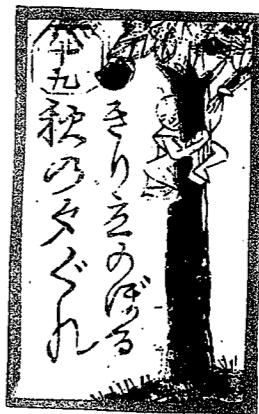 きり立のぼる
秋の夕ぐれ